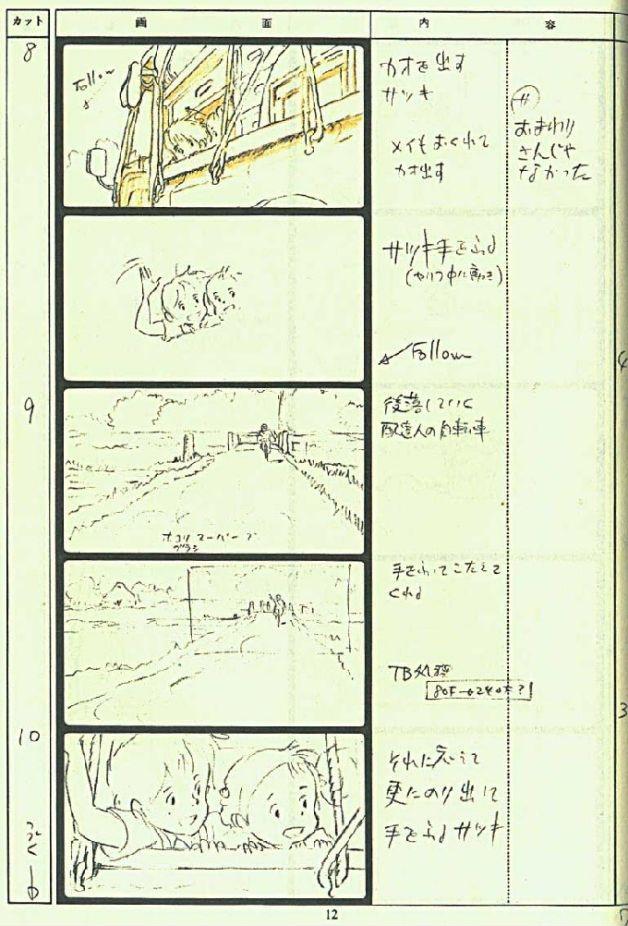 カット 画面 内容
8
Follow
カオを出す
サツキ
メイもおくれて
カオ出す
サ
おまわり
さんじゃ
なかった
サツキ手をふる
Follow
9
後落していく
配達人の自転車
ホコリ
ブラシ
手をふってこたえて
くれる
TB処理
10
それに応えて
更にのり出して
手をふるサツキ
つづく
12